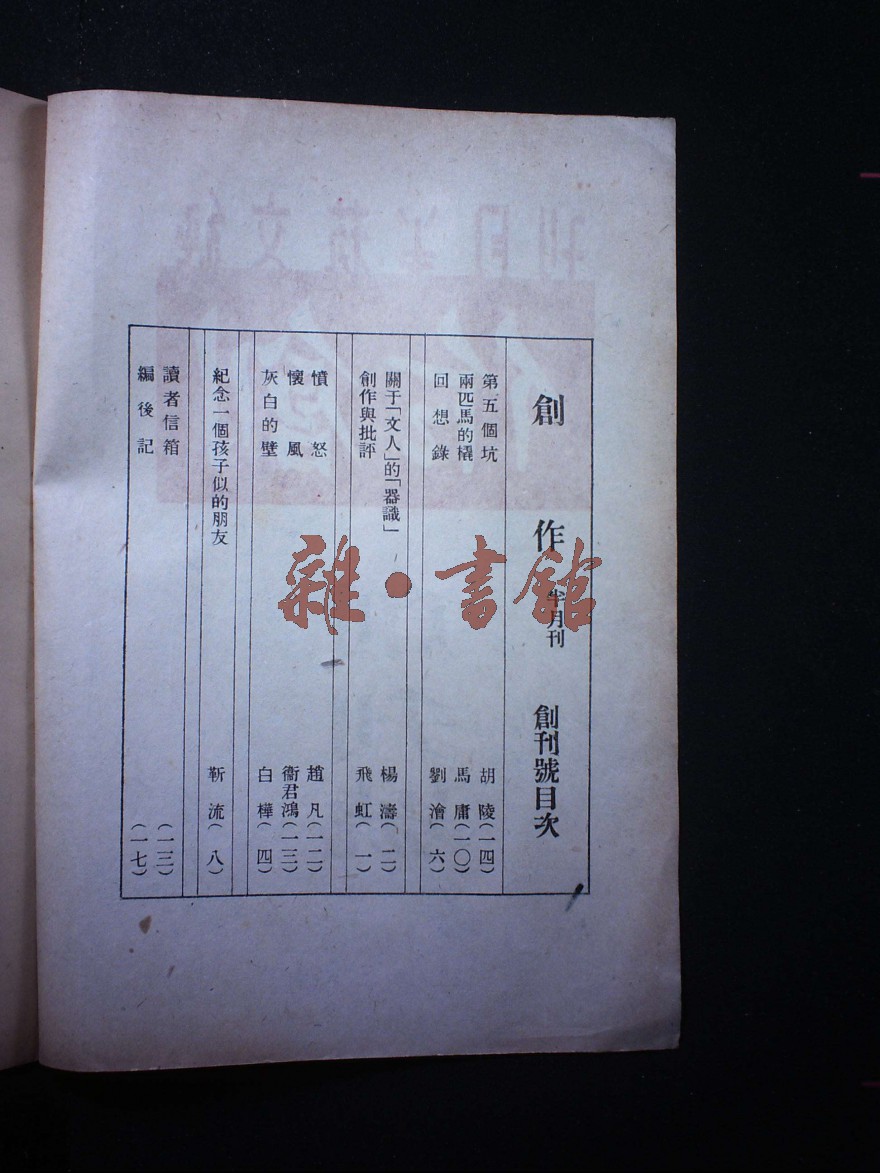 創作 半月刊 創刊號目次
第五個坑 胡陵(一四)
兩匹馬的橇 馬庸(一〇)
回想錄 劉澮(六)
關于「文人」的「器識」 楊濤(二)
創作與批評 飛虹(一)
憤怒 趙凡(一二)
懷風 衞君鴻(一三)
灰白的壁 白樺(四)
紀念一個孩子似的朋友 靳流(八)
讀者信箱 (一三)
編後記 (一七)
雜·書館